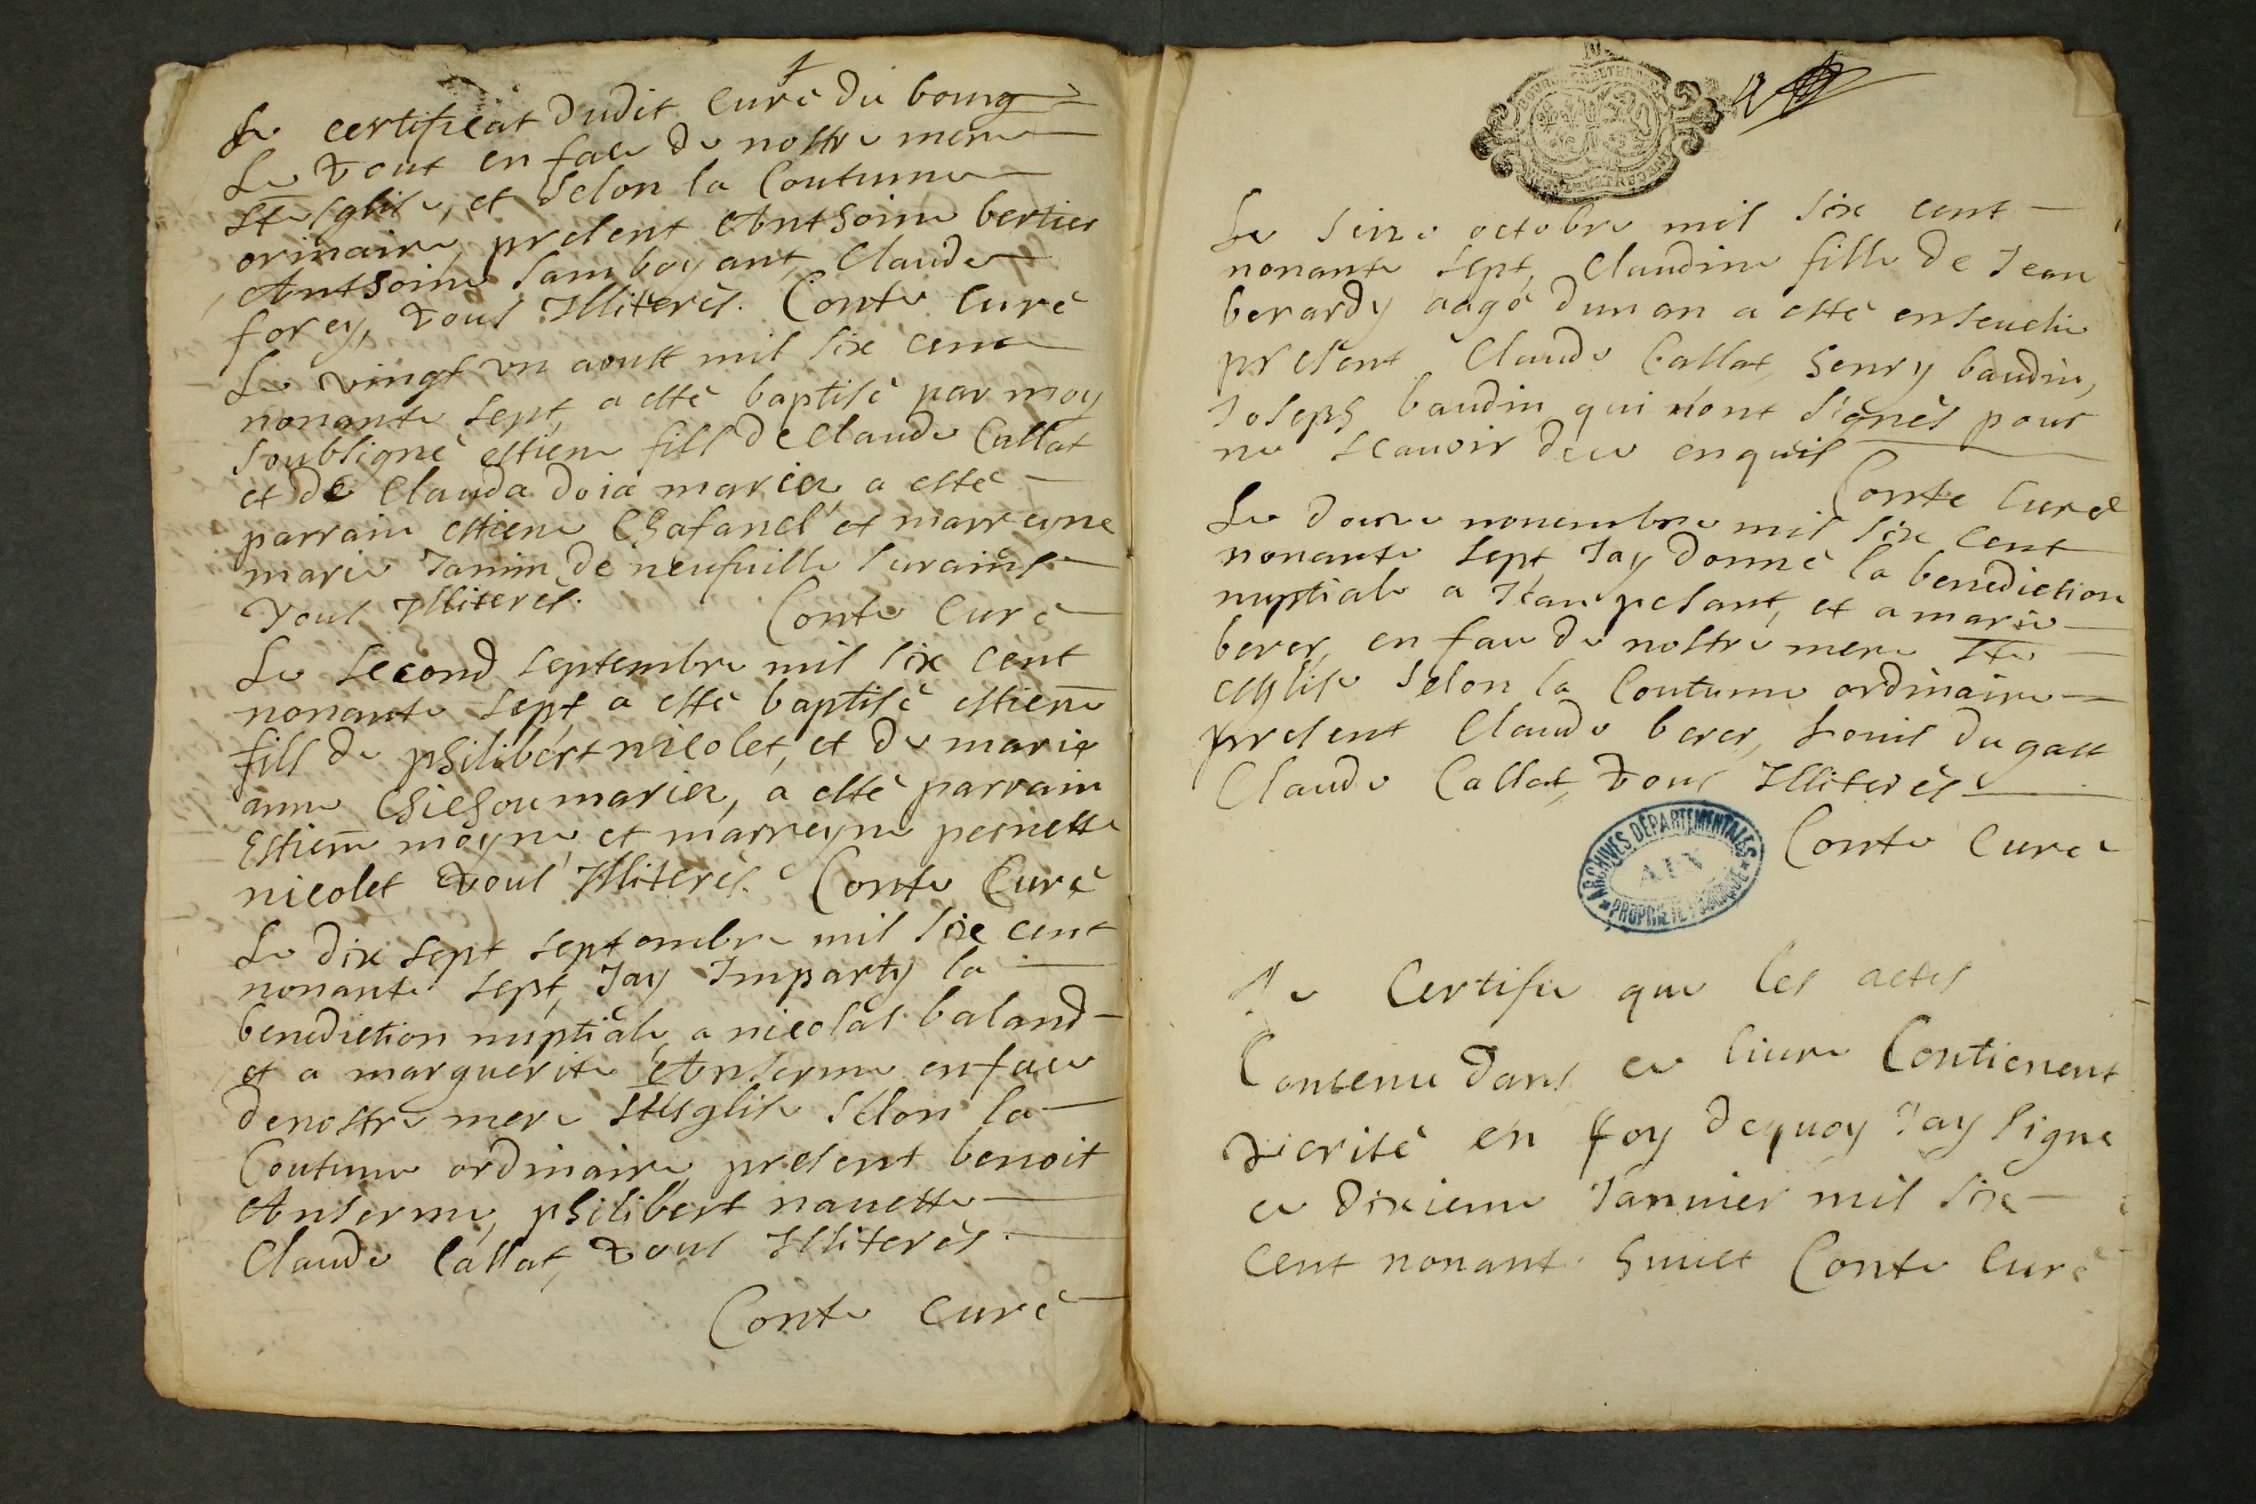 Le certificat dudit Curé du bourg
Le tout en face de nostre mere
Ste Esglise, et selon la Coutume
orinaire, present Anthoine bertier
Anthoine Jamboyant, Claude
forey, tous Illiterés. Conte Curé
Le vingt un aoust mil six cent
nonante sept, a esté baptisé par moy
soubsigné estiene fils de Claude Callat
et de Clauda doia mariez, a esté
parrain estiene Chafanel et marreyne
marie Janin de neufuille
tous Illiterés. Conte Curé
Le second septembre mil six cent
nonante sept a esté baptisé estiene
fils de philibert nicolet, et de marie
anne mariez, a esté parrain
Estiene moyne et marreyne pernette
nicolet tous Illiterés. Conte Curé
Le dix sept septembre mil six cent
nonante sept, Jay Imparty la
benediction nuptiale a nicolas baland
et a marguerite Anserme en face
de nostre mere Ste Esglise selon la
Coutume ordinaire, present benoit
Anserme, philibert nauette
Claude Callat, tous Illiterés.
Conte Curé
Le seize octobre mil six cent
nonante sept, Claudine fille de Jean
berardy aagé dun an a esté enseuelie
present Claude Callat, henry baudin,
Joseph baudin qui n'ont signés pour
ne scauoir de ce enquis
Conte Curé
Le douze nouembre mil six cent
nonante sept, Jay donné la benediction
nuptiale a Jean pesant, et a marie
berer, en face de nostre mere Ste
esglise selon la Coutume ordinaire
present Claude berer, Louis dugast
Claude Callat, tous Illiterés
Conte Curé
ARCHIVES DÉPARTEMENTALES
AIN
PROPRIÉTÉ PUBLIQUE
Je Certifie que les actes
Contenu dans ce liure Contienent
verité en foy dequoy Jay signé
ce dixieme Januier mil six
cent nonante huict Conte Curé